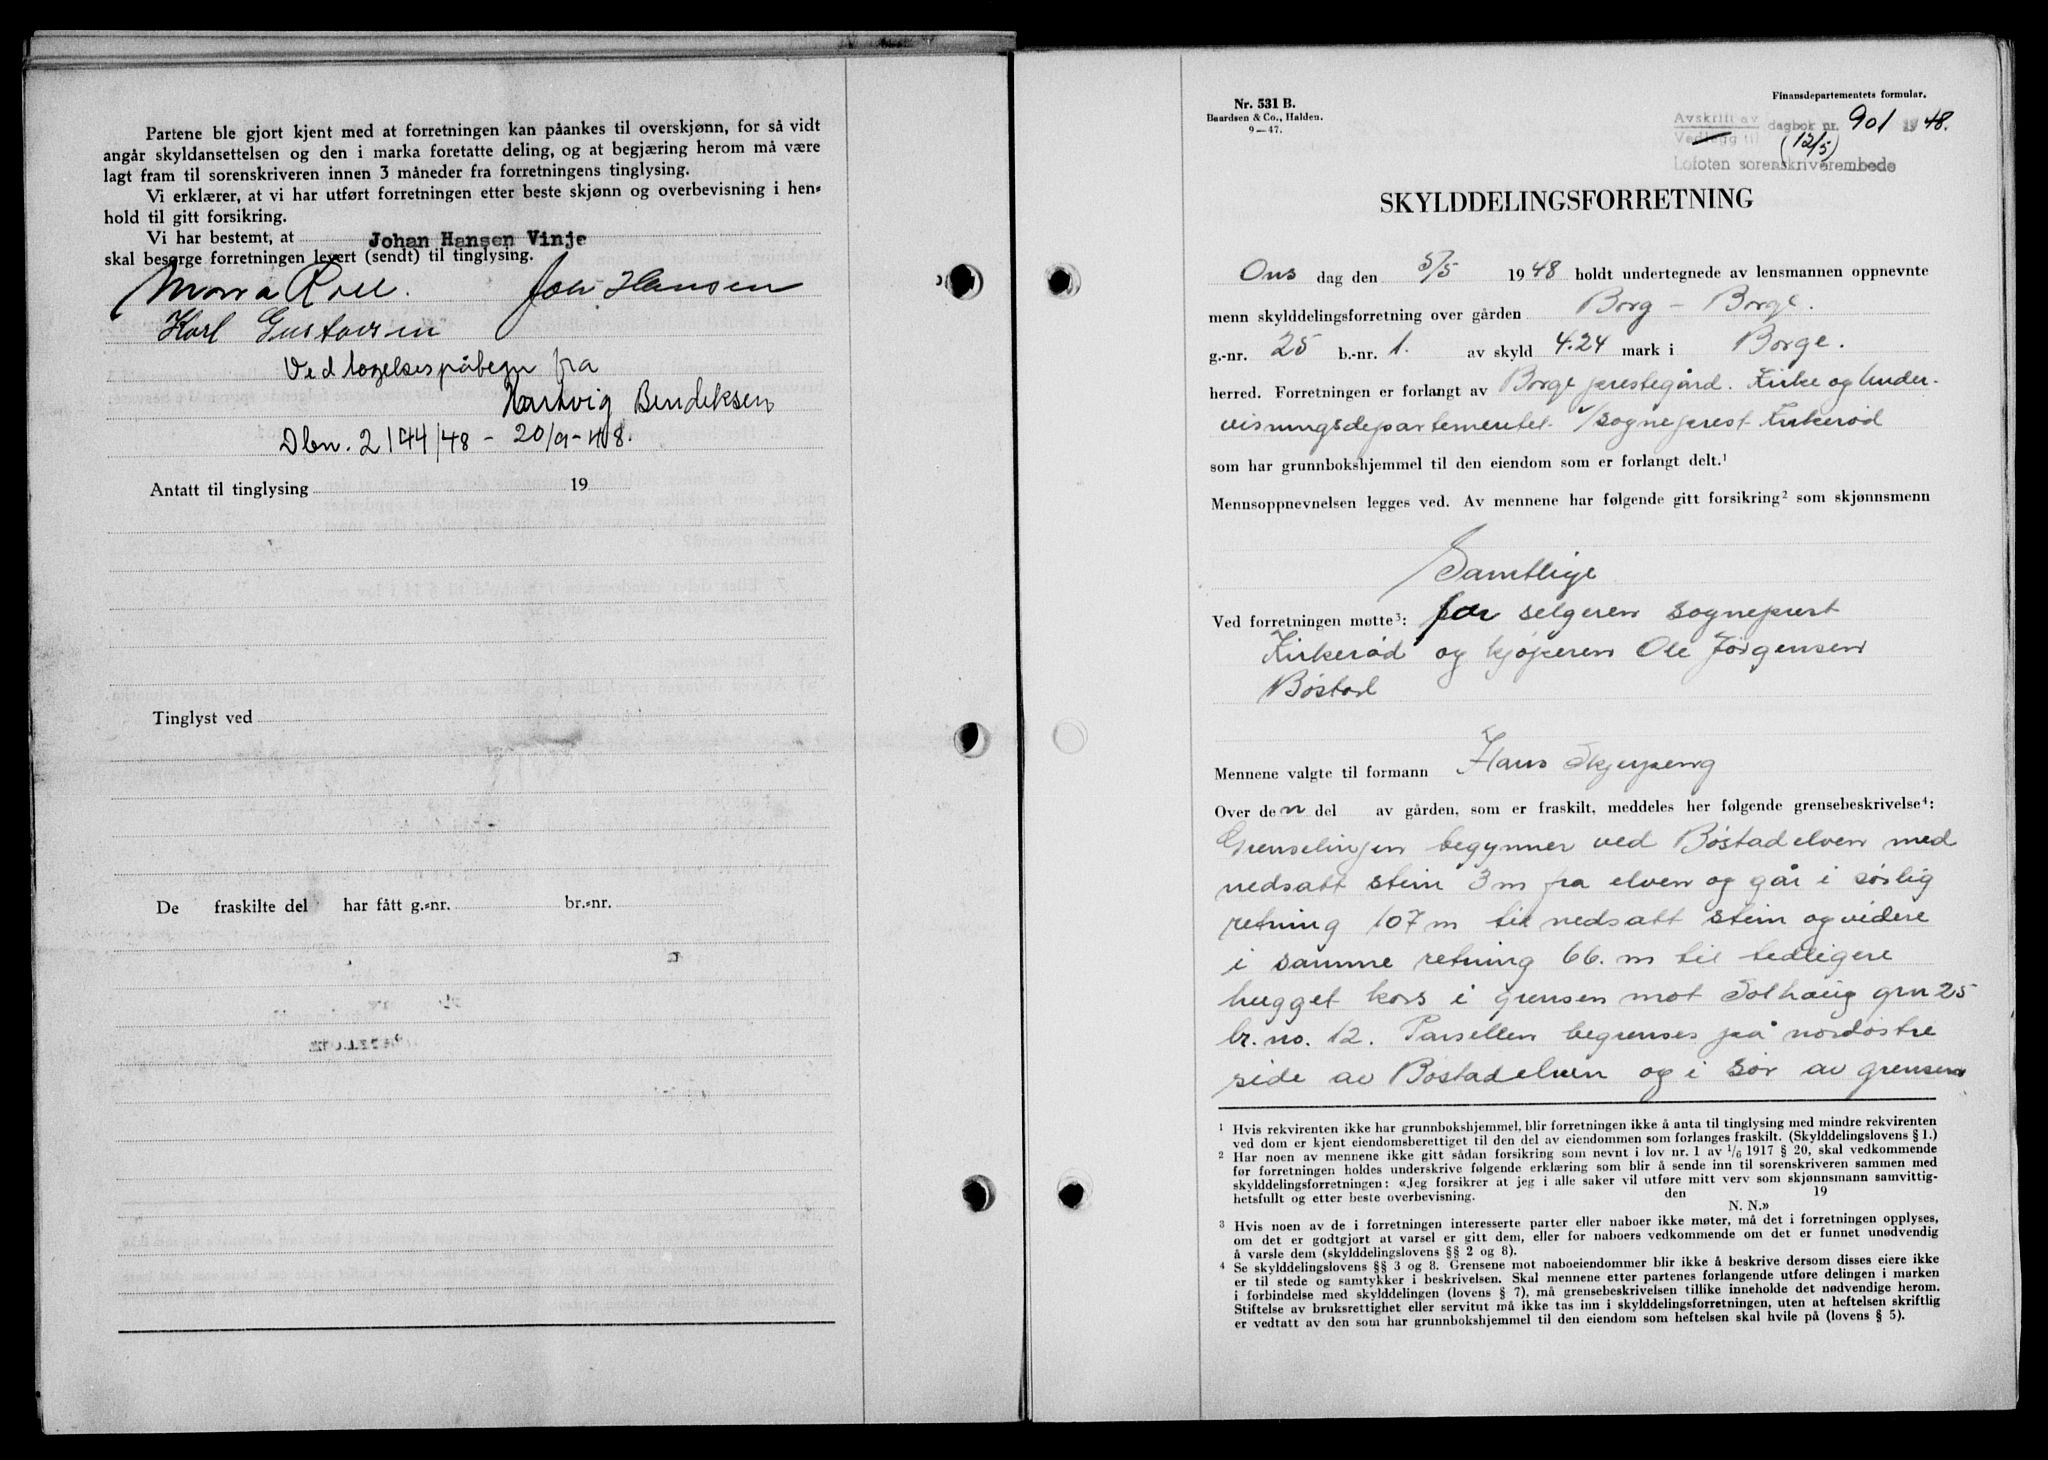 Partene ble gjort kjent med at forretningen kan påankes til overskjønn, for så vidt
angår skyldansettelsen og den i marka foretatte deling, og at begjæring herom må være
lagt fram til sorenskriveren innen 3 måneder fra forretningens tinglysing.
Vi erklærer, at vi har utført forretningen etter beste skjønn og overbevisning i hen-
hold til gitt forsikring.
Vi har bestemt, at Johan Hansen Vinje
skal besørge forretningen levert (sendt) til tinglysing.
Joh Hansen
Karl Gustavsen
Vedtagelsespåtegn fra
Hartvig Bendiksen
Dbn. 2144/48 - 20/9-48.
Antatt til tinglysing 19
Tinglyst ved
De fraskilte del har fått g.-nr. br.-nr.
Nr. 531 B.
Baardsen & Co., Halden.
9—47.
Finansdepartementets formular.
Avskrift av
Vedlegg til
dagbok nr. 901 1948.
(12/5)
Lofoten sorenskriverembede
SKYLDDELINGSFORRETNING
Ons dag den 5/5 1948 holdt undertegnede av lensmannen oppnevnte
menn skylddelingsforretning over gården Borg - Borge.
g.-nr. 25 b.-nr. 1. av skyld 4.24 mark i Borge.
herred. Forretningen er forlangt av Borge prestegård. Kirke og under-
visningsdepartementet v/sogneprest Kirkerød
som har grunnbokshjemmel til den eiendom som er forlangt delt.¹
Mennsoppnevnelsen legges ved. Av mennene har følgende gitt forsikring² som skjønnsmenn
Samtlige
Ved forretningen møtte³: for selgeren sogneprest
Kirkerød og kjøperen Ole Jørgensen
Bøstad
Mennene valgte til formann Hans Skjerpeng
Over den del av gården, som er fraskilt, meddeles her følgende grensebeskrivelse⁴:
Grenselinjen begynner ved Bøstadelven med
nedsatt stein 3 m fra elven og går i sørlig
retning 107 m til nedsatt stein og videre
i samme retning 66. m til tedligere
hugget kors i grensen mot Solhaug grn 25
br. no. 12. Parsellen begrenses på nordøstre
side av Bøstadelven og i sør av grensen
¹ Hvis rekvirenten ikke har grunnbokshjemmel, blir forretningen ikke å anta til tinglysing med mindre rekvirenten
ved dom er kjent eiendomsberettiget til den del av eiendommen som forlanges fraskilt. (Skylddelingslovens § 1.)
² Har noen av mennene ikke gitt sådan forsikring som nevnt i lov nr. 1 av 1/6 1917 § 20, skal vedkommende
før forretningen holdes underskrive følgende erklæring som blir å sende inn til sorenskriveren sammen med
skylddelingsforretningen: «Jeg forsikrer at jeg i alle saker vil utføre mitt verv som skjønnsmann samvittig-
hetsfullt og etter beste overbevisning. den 19
N. N.»
³ Hvis noen av de i forretningen interesserte parter eller naboer ikke møter, må det i forretningen opplyses,
om det er godtgjort at varsel er gitt dem, eller for naboers vedkommende om det er funnet unødvendig
å varsle dem (skylddelingslovens §§ 2 og 8).
⁴ Se skylddelingslovens §§ 3 og 8. Grensene mot naboeiendommer blir ikke å beskrive dersom disses eiere ikke
er til stede og samtykker i beskrivelsen. Skal mennene etter partenes forlangende utføre delingen i marken
i forbindelse med skylddelingen (lovens § 7), må grensebeskrivelsen tillike inneholde det nødvendige herom.
Stiftelse av bruksrettighet eller servitut må ikke tas inn i skylddelingsforretningen, uten at heftelsen skriftlig
er vedtatt av den som har grunnbokshjemmel til den eiendom som heftelsen skal hvile på (lovens § 5).